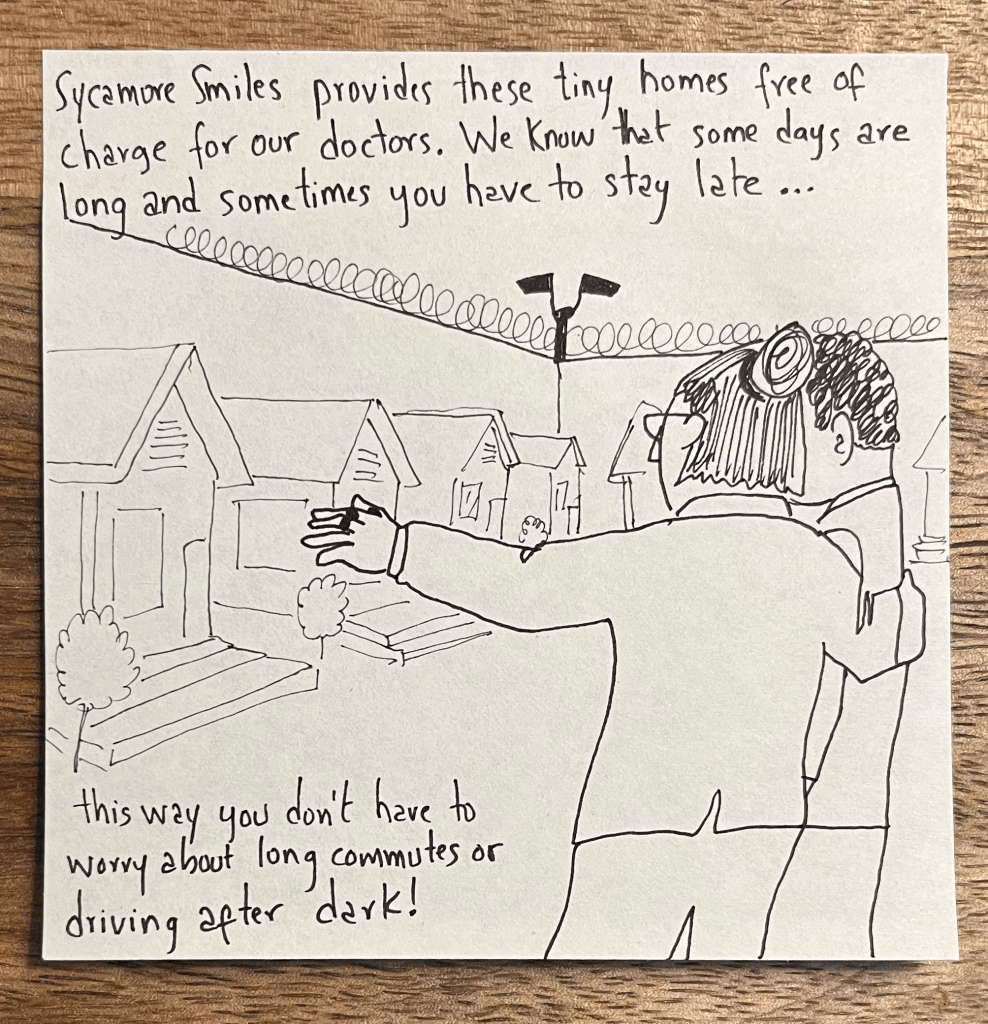 Sycamore Smiles provides these tiny homes free of
charge for our doctors. We know that some days are
long and sometimes you have to stay late...
this way you don't have to
worry about long commutes or
driving after dark!